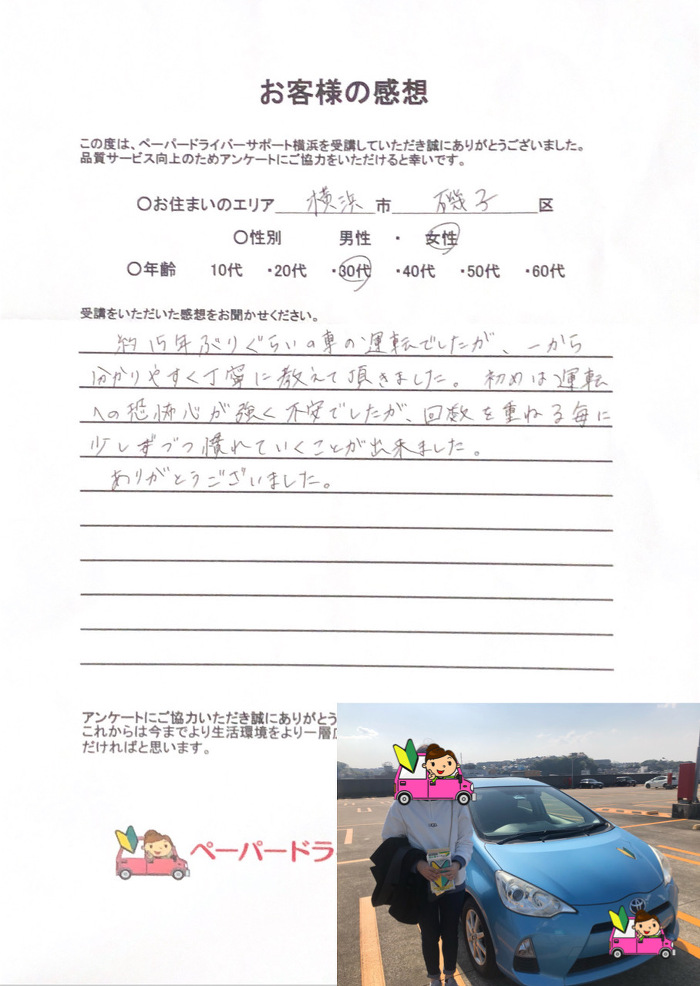 お客様の感想
この度は、ペーパードライバーサポート横浜を受講していただき誠にありがとうございました。
品質サービス向上のためアンケートにご協力をいただけると幸いです。
〇お住まいのエリア 横浜 市 磯子 区
〇性別 男性 ・ 女性
〇年齢 10代 ・20代 ・30代 ・40代 ・50代 ・60代
受講をいただいた感想をお聞かせください。
約15年ぶりぐらいの車の運転でしたが、一から
分かりやすく丁寧に教えて頂きました。初めは運転
への恐怖心が強く不安でしたが、回数を重ねる毎に
少しずつ慣れていくことが出来ました。
ありがとうございました。
アンケートにご協力いただき誠にありがとう
これからは今までより生活環境をより一層広
だければと思います。
ペーパードラ